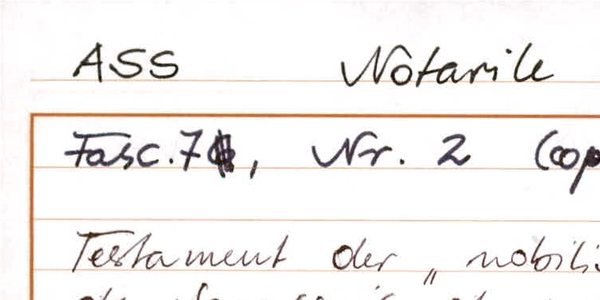 ASS Notarile
Fasc. 7, Nr. 2 (cop
Testament der „nobilis